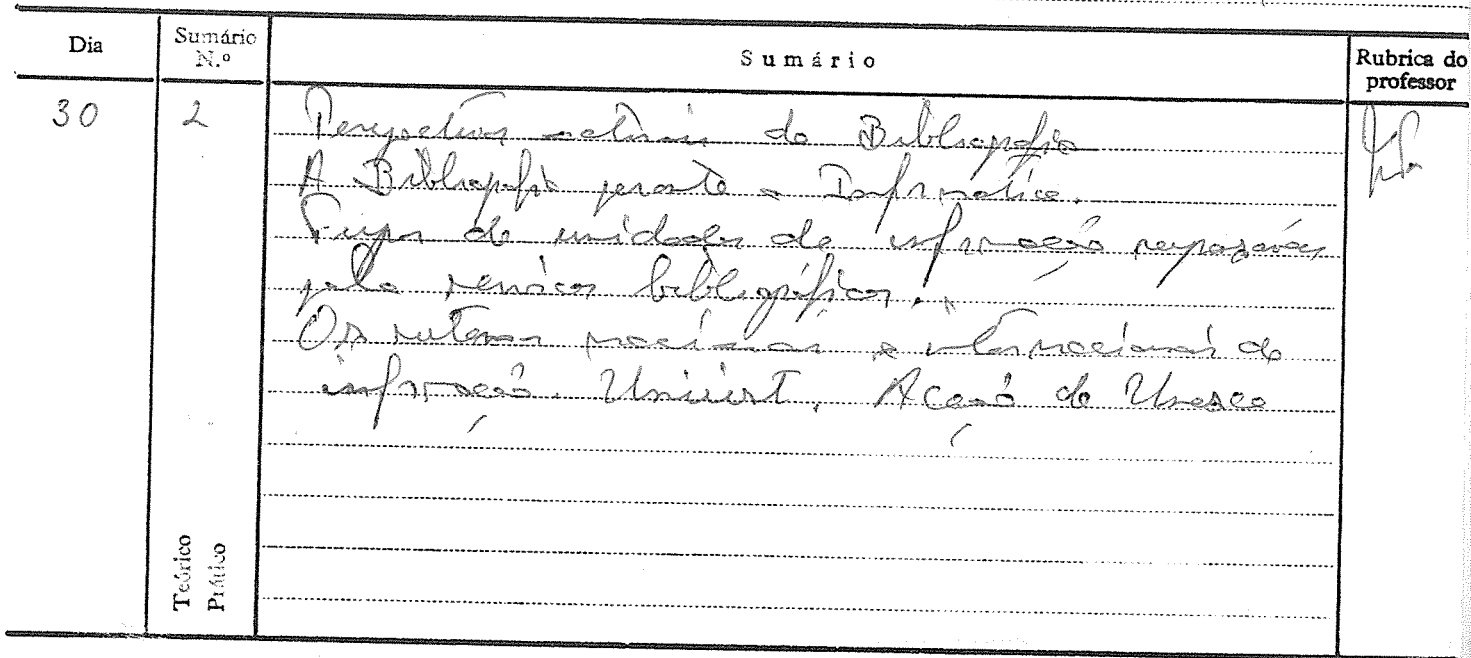 Dia Sumário N.º Sumário Rubrica do professor
30 2 Perspectivas actuais da Bibliografia
A Bibliografia perante a Informática.
Tipos de unidades de informação
pelos serviços bibliográficos.
Os sistemas nacionais e internacionais de
informação. Unisist. Acção da Unesco
Teórico
Prático